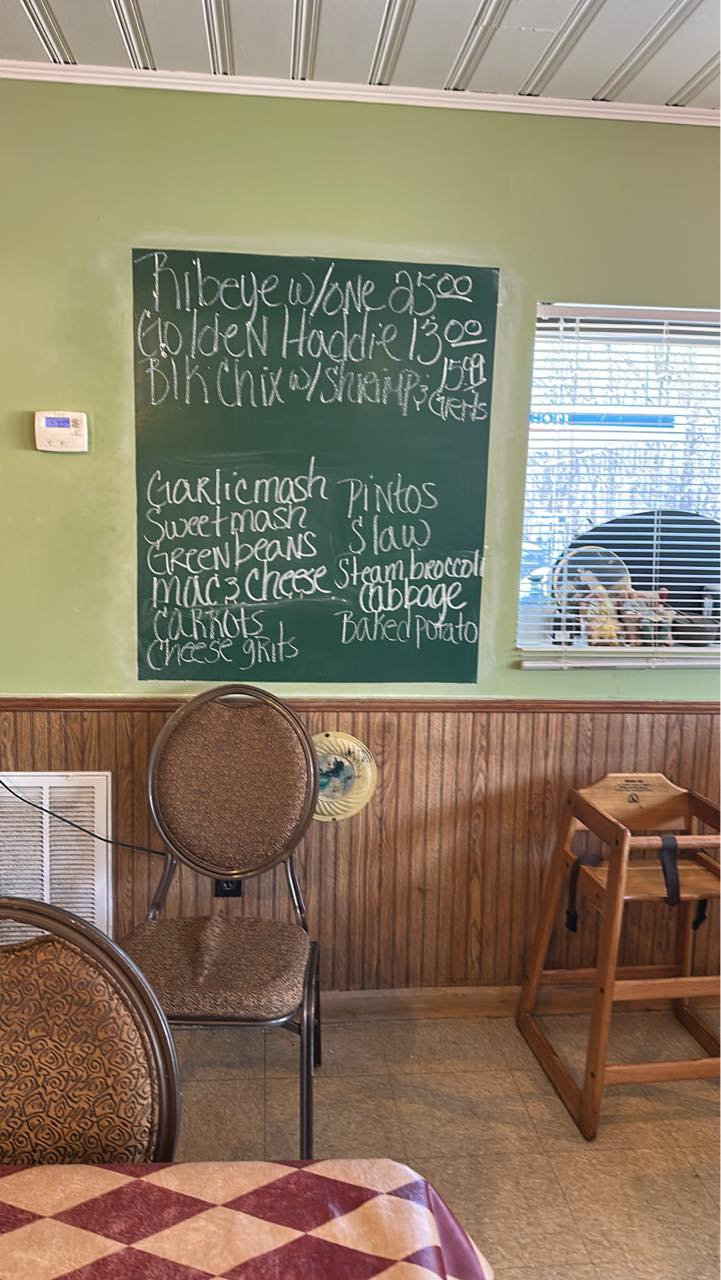 Ribeye w/one 25.00
Golden Haddie 13.00
Blk Chix w/ Shrimp & Grits 15.99
Garlic mash
Sweet mash
Green beans
mac & cheese
carrots
cheese grits
Pintos
Slaw
Steam broccoli
Cabbage
Baked potato